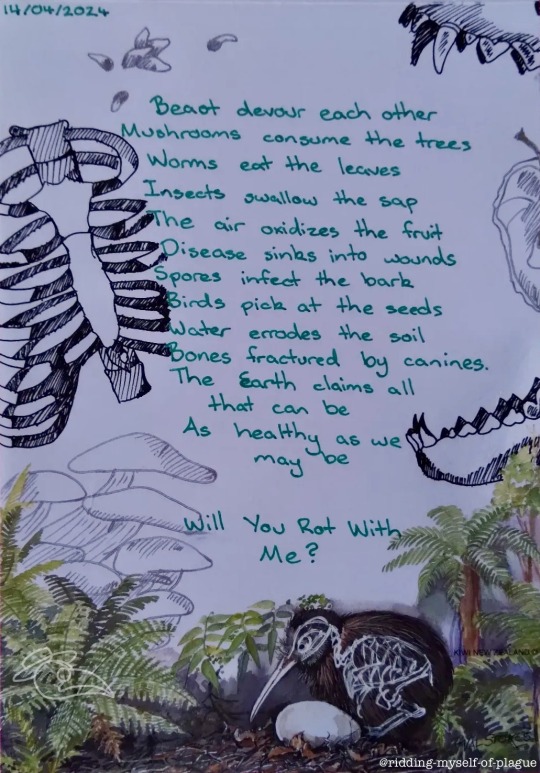 14/04/2024
Beast devour each other
Mushrooms consume the trees
Worms eat the leaves
Insects swallow the sap
The air oxidizes the fruit
Disease sinks into wounds
Spores infect the bark
Birds pick at the seeds
Water errodes the soil
Bones fractured by canines.
The Earth claims all
that can be
As healthy as we
may be
Will You Rot With
Me?
KIWI NEW ZEALAND
@ridding-myself-of-plague